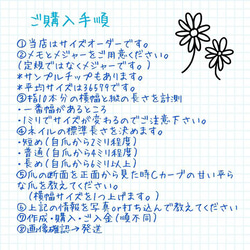 ご購入手順
①当店はサイズオーダーです。
②メモとメジャーをご用意ください。
(定規ではなくメジャーです。)
*サンプルチップもあります。
*平均サイズは36579です。
③指10本分の横幅と縦の長さを計測
・一番幅があるところ
・1ミリでサイズが変わるのでご注意下さい。
④ネイルの標準長さを決めます。
・短め(自爪から2ミリ程度)
・普通(自爪から4ミリ程度)
・長め(自爪から6ミリ以上)
⑤爪の断面を正面から見た時カーブの甘い平らな爪を教えてください
(横幅サイズを1つ上げます。)
⑥上記の情報を写真or打ち込んで教えてください
⑦作成・購入・ご入金(順不同)
⑧画像確認→発送